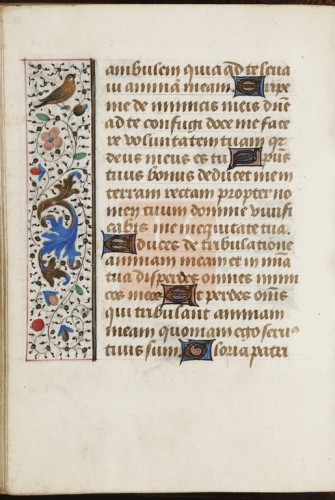 ambulem quia ad te leua
ui animā meam. Eripe
me de inimicis meis dn̄e
ad te confugi doce me face
re voluntatem tuam qr
deus meus es tu Spūs
tuus bonus deducet me in
terram rectam propter no
men tuum domine viuifi
cabis me in equitate tua.
Educes de tribulatione
animam meam et in mīa
tua disperdes omnes inimi
cos meos Et perdes om̄s
qui tribulant animam
meam quoniam ego seruꝰ
tuus sum. Gloria patri